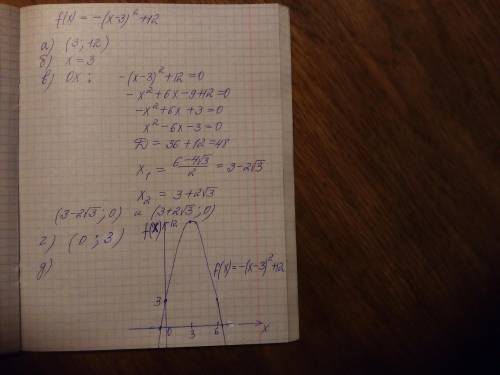 f(x) = -(x-3)² +12
а) (3; 12)
б) x = 3
в) Ox: -(x-3)² +12 = 0
-x² +6x -9+12 = 0
-x² +6x +3 = 0
x² -6x -3 = 0
D = 36 +12 = 48
x₁ = (6-4√3)/2 = 3-2√3
x₂ = 3+2√3
(3-2√3; 0) и (3+2√3; 0)
г) (0 ; 3)
д)
f(x) 12
f(x) = -(x-3)² +12
3
0 3 6 x